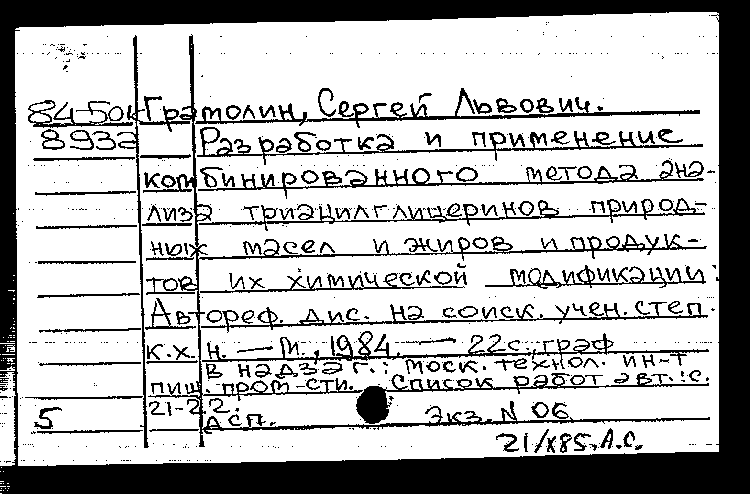 84-5ок Грамолин, Сергей Львович.
8932 Разработка и применение
комбинированного метода ана-
лиза триацилглицеринов природ-
ных масел и жиров и продук-
тов их химической модификации:
Автореф. дис. на соиск. учен. степ.
к.х.н. — М., 1984. — 22 с., граф
в надзаг.: Моск. технол. ин-т
пищ. пром-сти. Список работ авт.: с.
21-22.
5 дсп. Экз. N 06
21/X85, А.С.